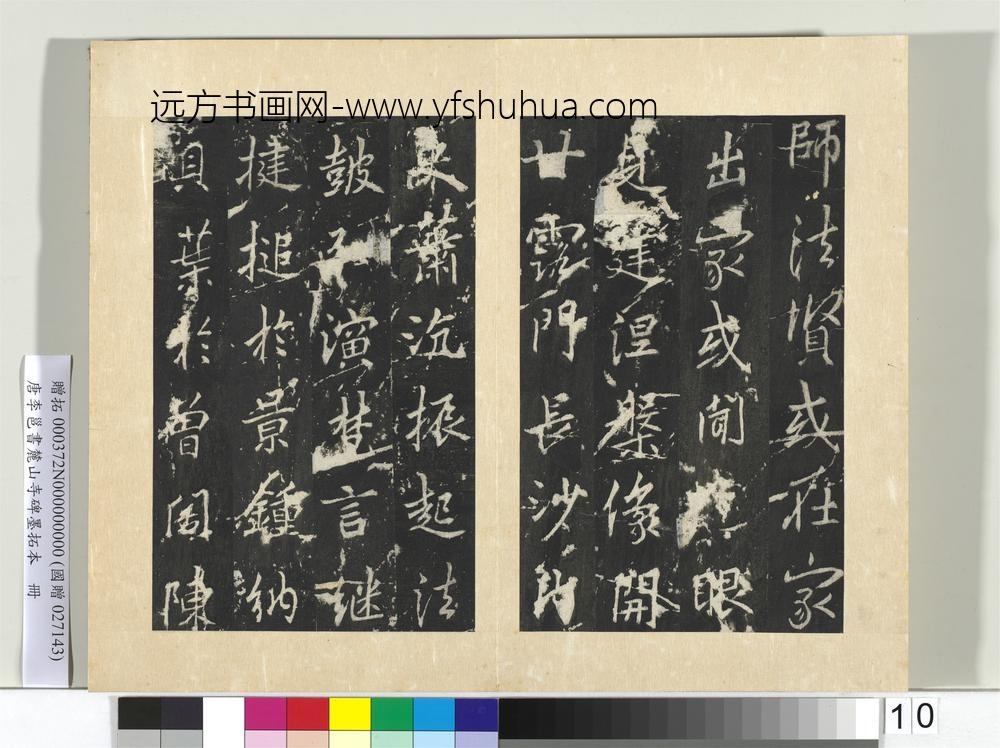 远方书画网-www.yfshuhua.com
師法賢或在家
出家或間眼
見建涅槃像開
甘露門長沙内
蕭沉振起法
鼓演楚言継
揵搥於景鍾納
須葉於曾閣陳
贈拓 000372N000000000 (國贈 027143)
唐李邕書麓山寺碑墨拓本 冊
10